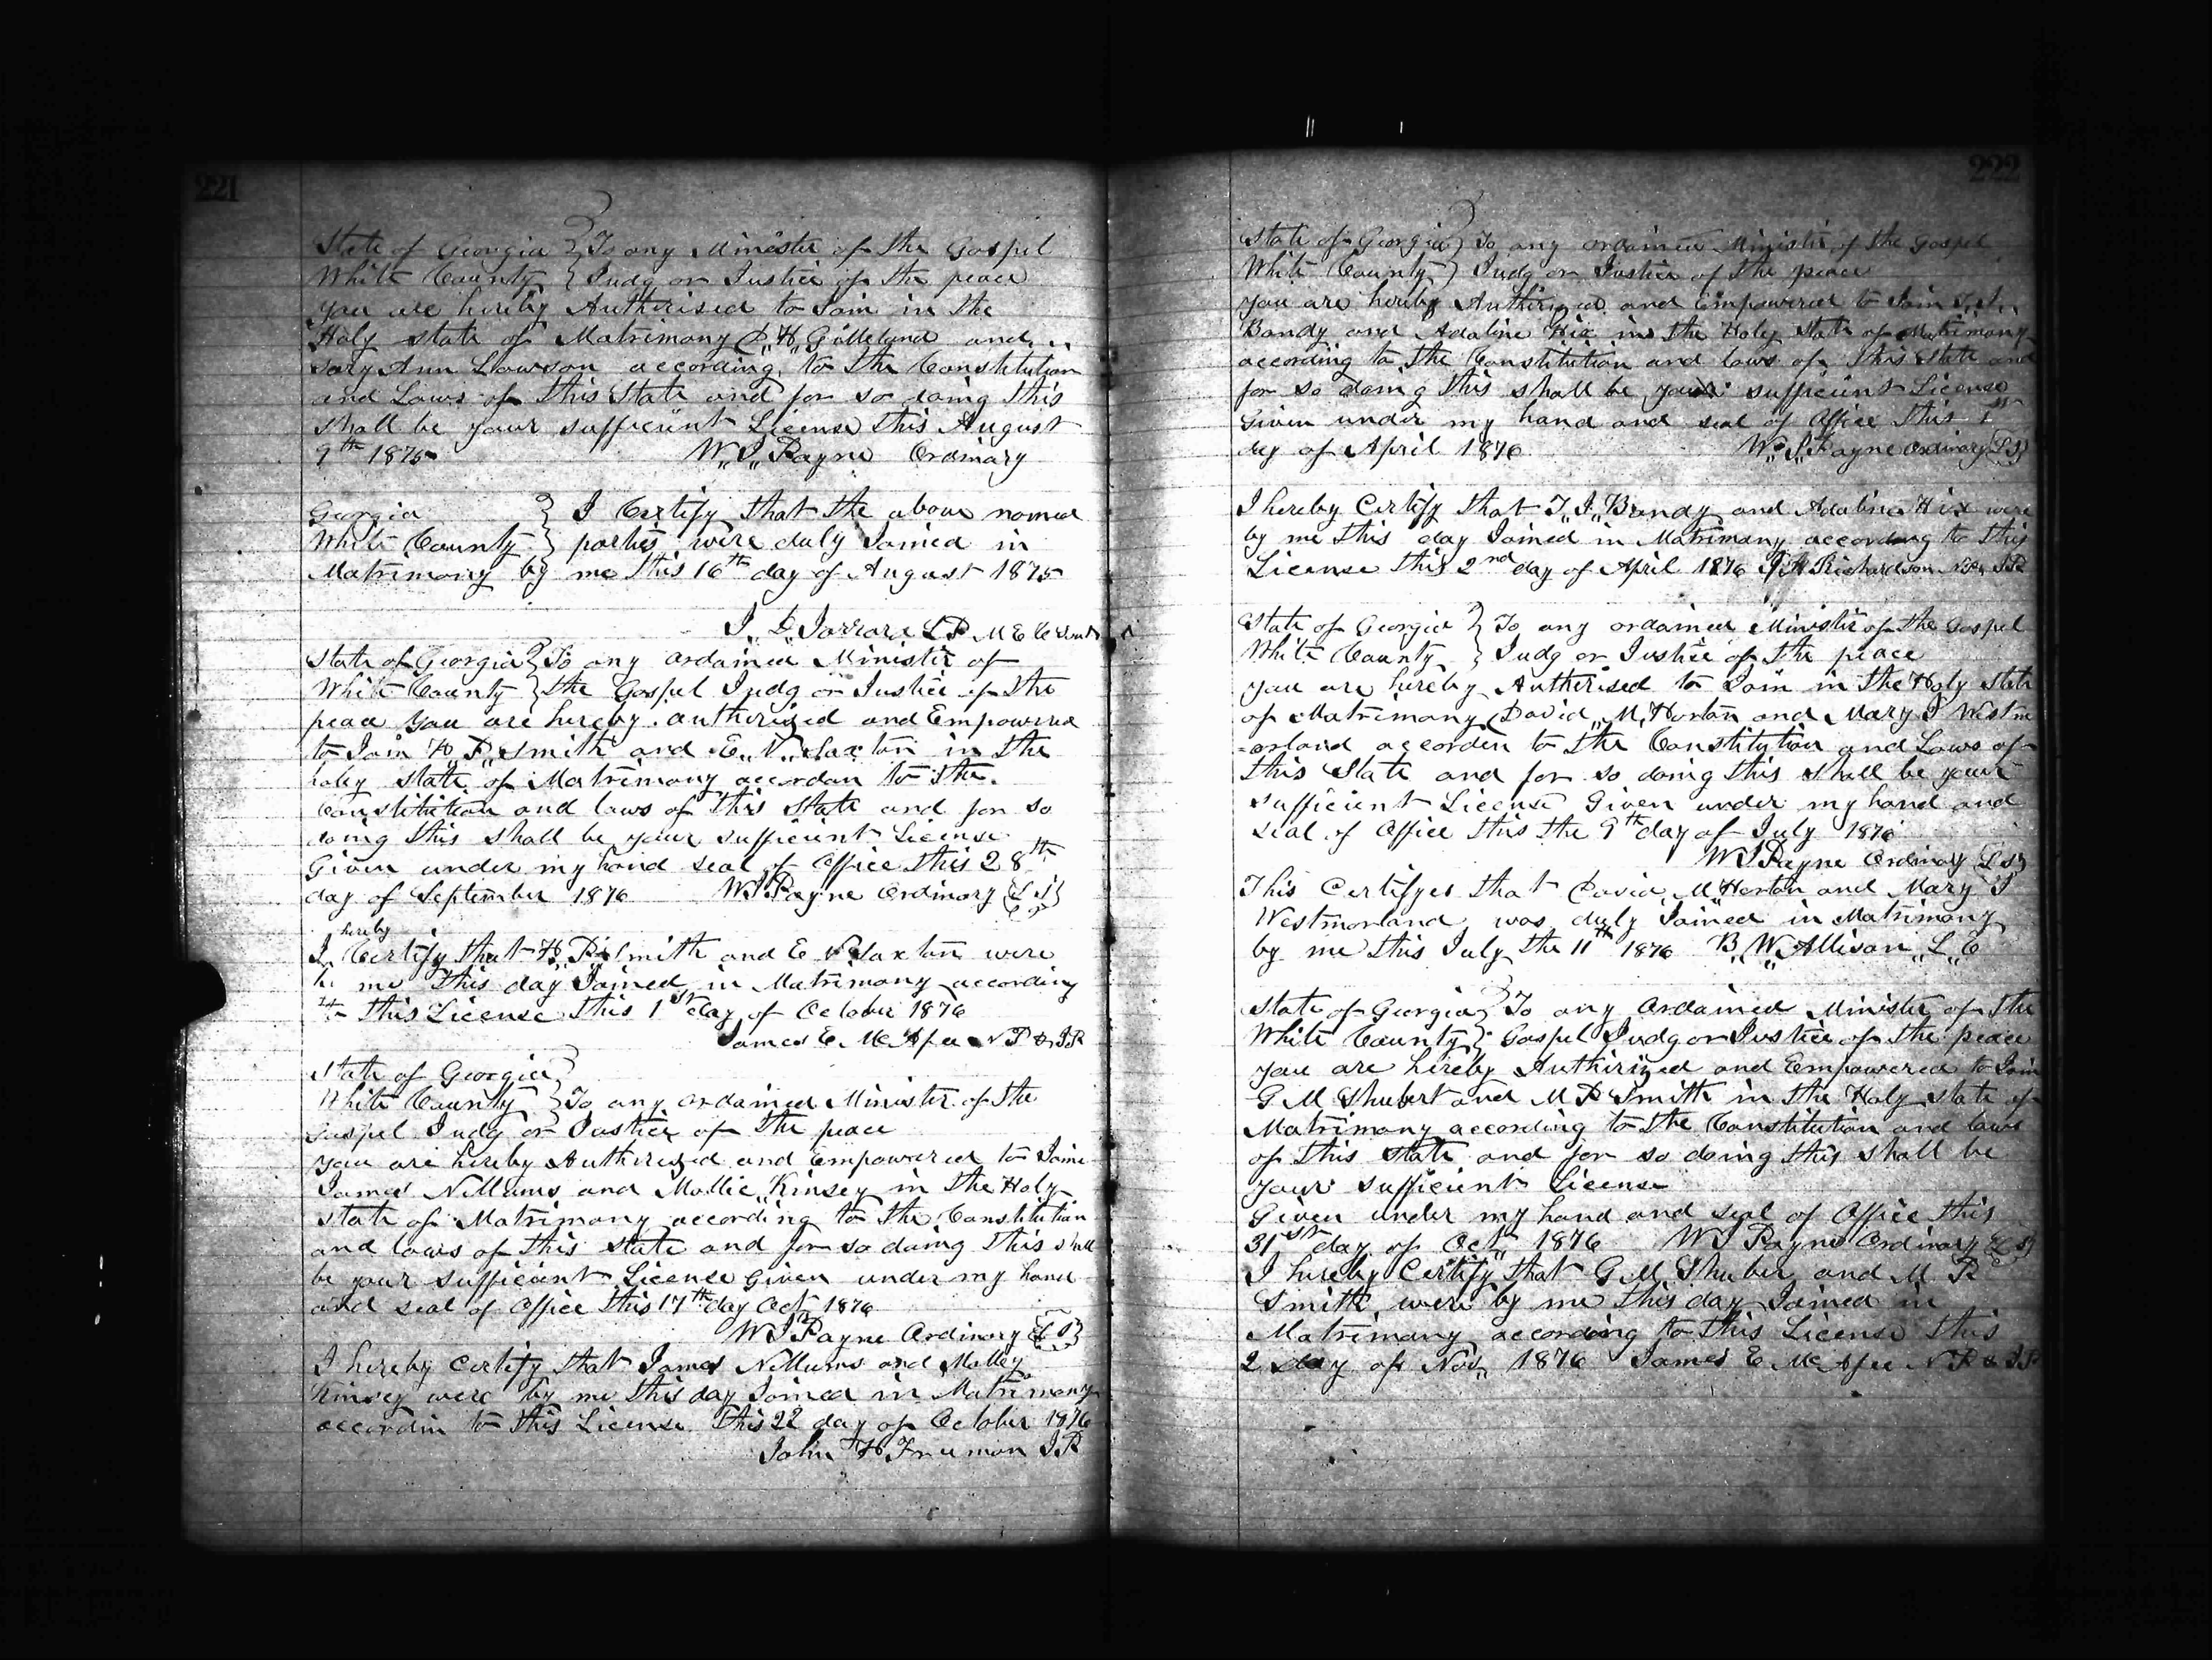 221
State of Georgia } To any Minister of the Gospel
White County } Judg or Justice of the peace
you are hereby Authorised to Join in the
Holy state of Matrimony D,, H,, Gilleland and
Ann Lawson according to the Constitution
and Laws of this State and for so doing this
shall be your sufficient License this August
9th 1875 W,, J,, Payne Ordinary
Georgia } I Certify that the above named
White County } parties were duly Joined in
Matrimony by me this 16th day of August 1875
J,, D,, Jarrard L P M E
State of Georgia } To any ordained Minister of
White County } the Gospel Judg or Justice of the
peace you are hereby authorized and Empowred
to Join H,, P,, Smith and E,, V,, Saxton in the
holy state of Matrimony accordan to the
Constitution and laws of this State and for so
doing this shall be your sufficient License
Given under my hand seal of Office this 28th
day of September 1876 W J Payne Ordinary {L S}
hereby
I Certify that H,, P,, Smith and E V Saxton were
me this day Joined in Matrimony according
to this License this 1st day of October 1876
James E. McAfee N P & J P
State of Georgia }
White County } To any ordained Minister of the
Gospel Judg or Justice of the peace
you are hereby Authorized and Empowered to Joine
James Nellums and Mollie Kinsey in the Holy
state of Matrimony according to the Constitution
and laws of this state and for so doing this shall
be your sufficient License Given under my hand
and seal of Office this 17th day Oct 1876
W J Payne Ordinary {L S}
I hereby Certify that James Nellums and Molley
Kinsey were by me this day Joined in Matrimony
accordin to this License This 22 day of October 1876
John H Freeman J P
222
State of Georgia } To any ordained Minister of the Gospel
White County } Judg or Justice of the peace
you are hereby Authirized and Empowered to Join
Bandy and Adaline Hix in the Holy State of Matrimony
according to the Constitution and laws of this State and
for so doing this shall be your sufficient License
Given under my hand and seal of Office this 1st
day of April 1876 W,, J,, Payne Ordinary {L S}
I hereby Certify that T,, J,, Bandy and Adaline Hix were
by me this day Joined in Matrimony according to this
License this 2nd day of April 1876 Richardson N P & J P
State of Georgia } To any ordained Minister of the Gospel
White County } Judg or Justice of the peace
you are hereby Autherised to Join in the Holy state
of Matrimony David,, M,, Horton and Mary J Westm
-orland accorden to the Constitution and Laws of
this State and for so doing this shall be your
sufficient License Given under my hand and
seal of Office this the 9th day of July 1876
W J Payne Ordinary {L S}
This Certifyes that David,, M,, Horton and Mary J
Westmorland was duly Joined in Matrimony
by me this July the 11th 1876 B,, W,, Allison,, L,, E
State of Georgia } To any Ordained Minister of the
White County } Gospel Judg or Justice of the peace
you are hereby Authirized and Empowered to Join
G M Shubert and M P Smith in the Holy state of
Matrimony according to the Constitution and laws
of this state and for so doing this shall be
your sufficient License
Given under my hand and seal of Office this
31st day of Oct,, 1876 W J Payne Ordinary {L S}
I hereby Certify that G M Shuber and M P
Smith were by me this day Joined in
Matrimony according to this License this
2 day of Nov,, 1876 James E McAfee N P & J P